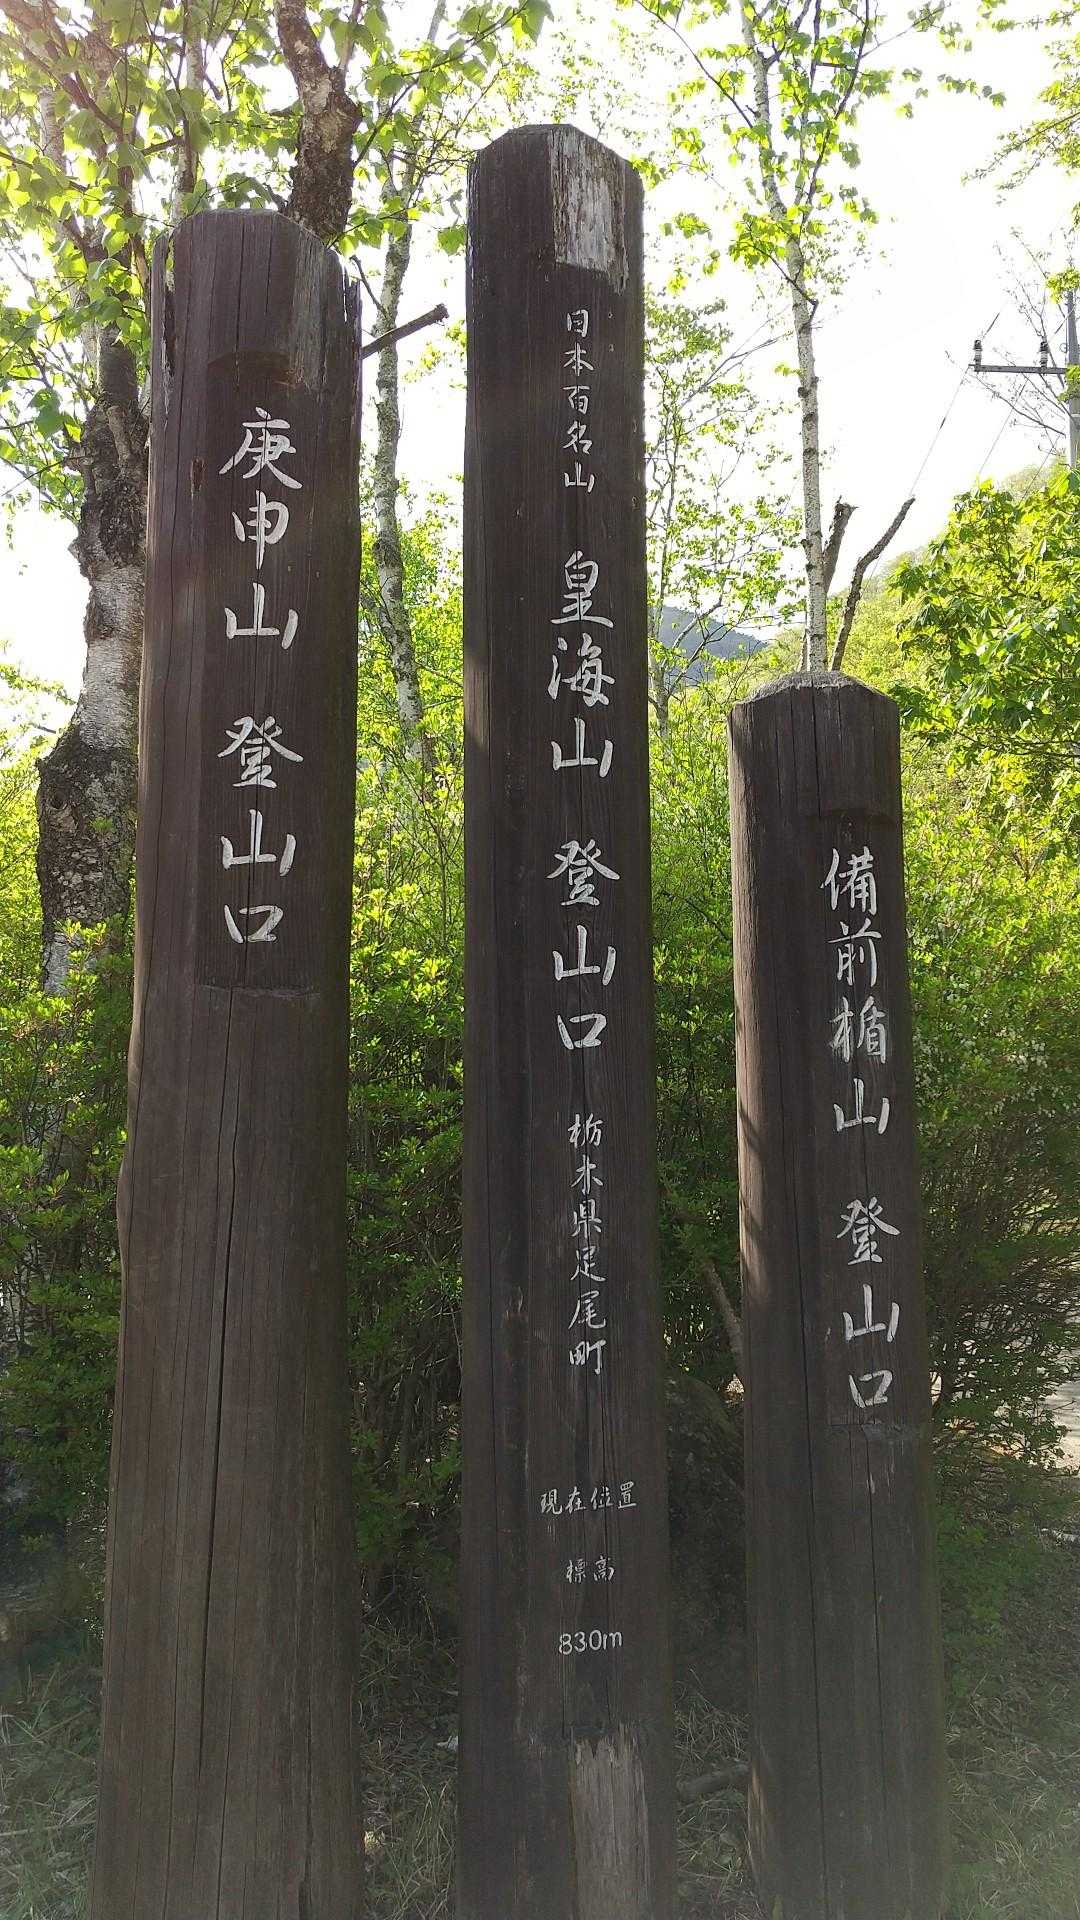 庚申山 登山口
日本百名山 皇海山 登山口 栃木県足尾町
現在位置
標高
830m
備前楯山 登山口